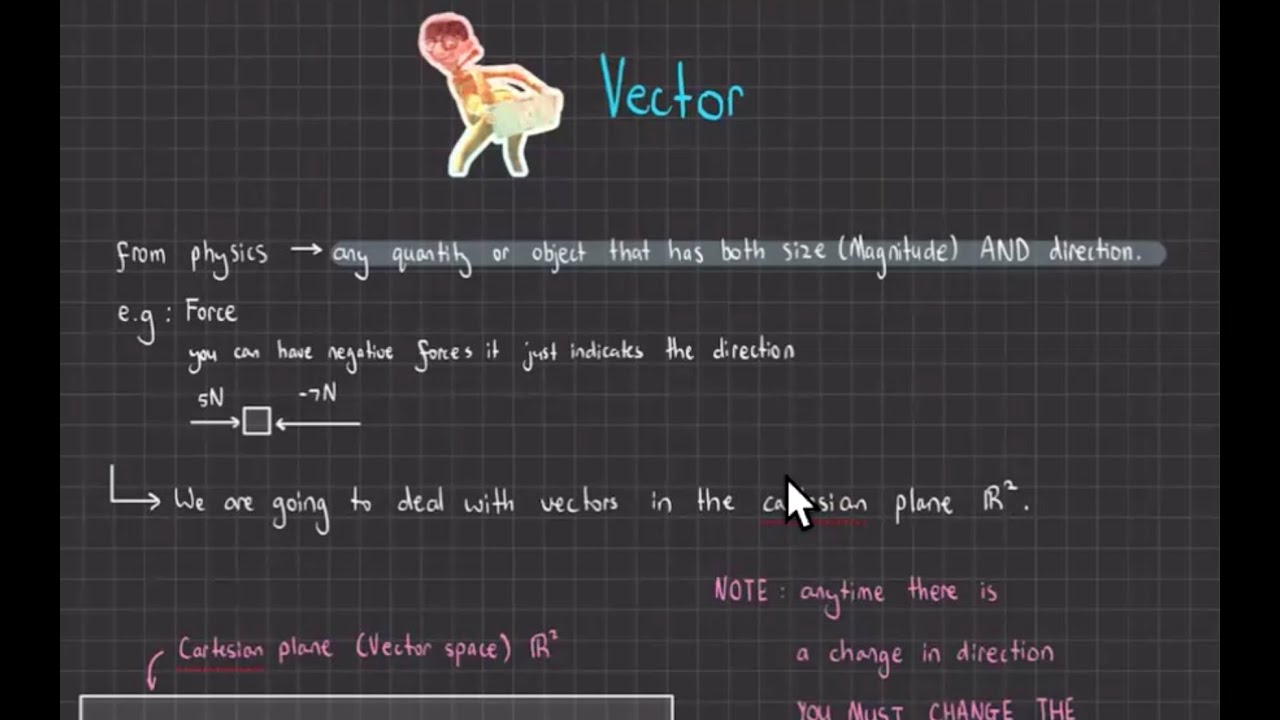 Vector
from physics → any quantity or object that has both size (Magnitude) AND direction.
e.g : Force
you can have negative forces it just indicates the direction
5N -7N
We are going to deal with vectors in the cartesian plane ℝ².
NOTE : anytime there is
a change in direction
YOU MUST CHANGE THE
Cartesian plane (Vector space) ℝ²